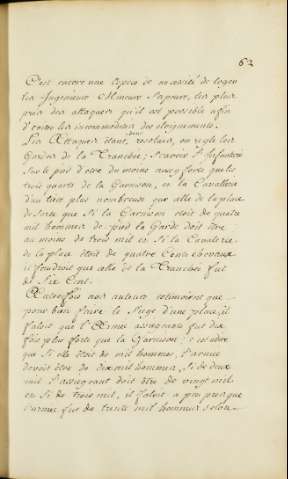 62
C'est encore une espece de necessité de loger
les Ingenieurs Mineurs Sapeurs, les plus
prés des attaques qu'il est possible afin
d'eviter les incommodités des eloignements.
Les Attaques étant donc resolues, on regle les
Gardes de la Tranchée; Sçavoir l'Infanterie
sur le pied d'estre du moins aussy forte que les
trois quarts de la Garnison, et la Cavallerie
d'un tiers plus nombreuse que celle de la place
de sorte que si la Garnison étoit de quatre
mil hommes de pied la Garde doit être
au moins de trois mil et si la Cavalerie
de la place étoit de quatre Cents chevaux
il faudroit que celle de la Tranchée fut
de Six Cent.
Autrefois nos auteurs estimoient que
pour bien faire le Siege d'une place, il
faloit que l'Armée assiegeante fut dix
fois plus forte que la Garnison; c'est a dire
que Si elle étoit de mil hommes, l'armée
devoit être de dix mil hommes, Si de deux
mil l'assiegeant doit être de vingt mil
et Si de trois mil, il faloit a peu prés que
l'armée fut de trente mil hommes selon